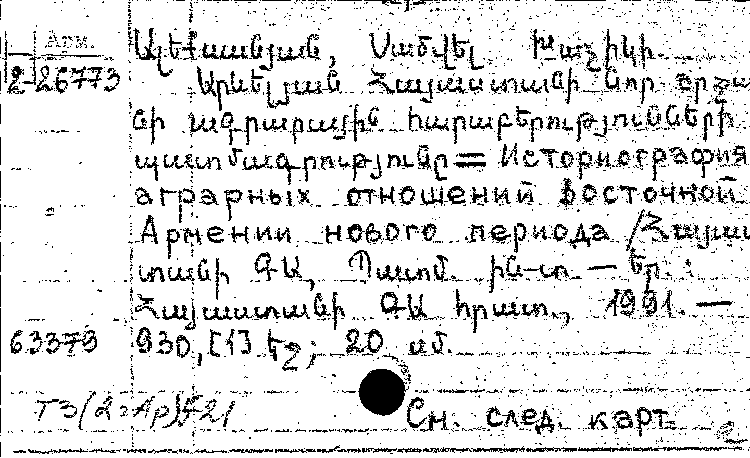 Арм.
2-26773
Ալեքսանյան, Սամվել Խաչիկի.
Արևելյան Հայաստանի նոր շրջա
նի ագրարային հարաբերությունների
պատմագրությունը = Историография
аграрных отношений Восточной
Армении нового периода / Հայաս
տանի ԳԱ, Պատմ. ին-տ. — Եր. :
Հայաստանի ԳԱ հրատ., 1991. —
63379 930, [1] էջ ; 20 սմ.
Т3(2=Ар)521
См. след. карт.